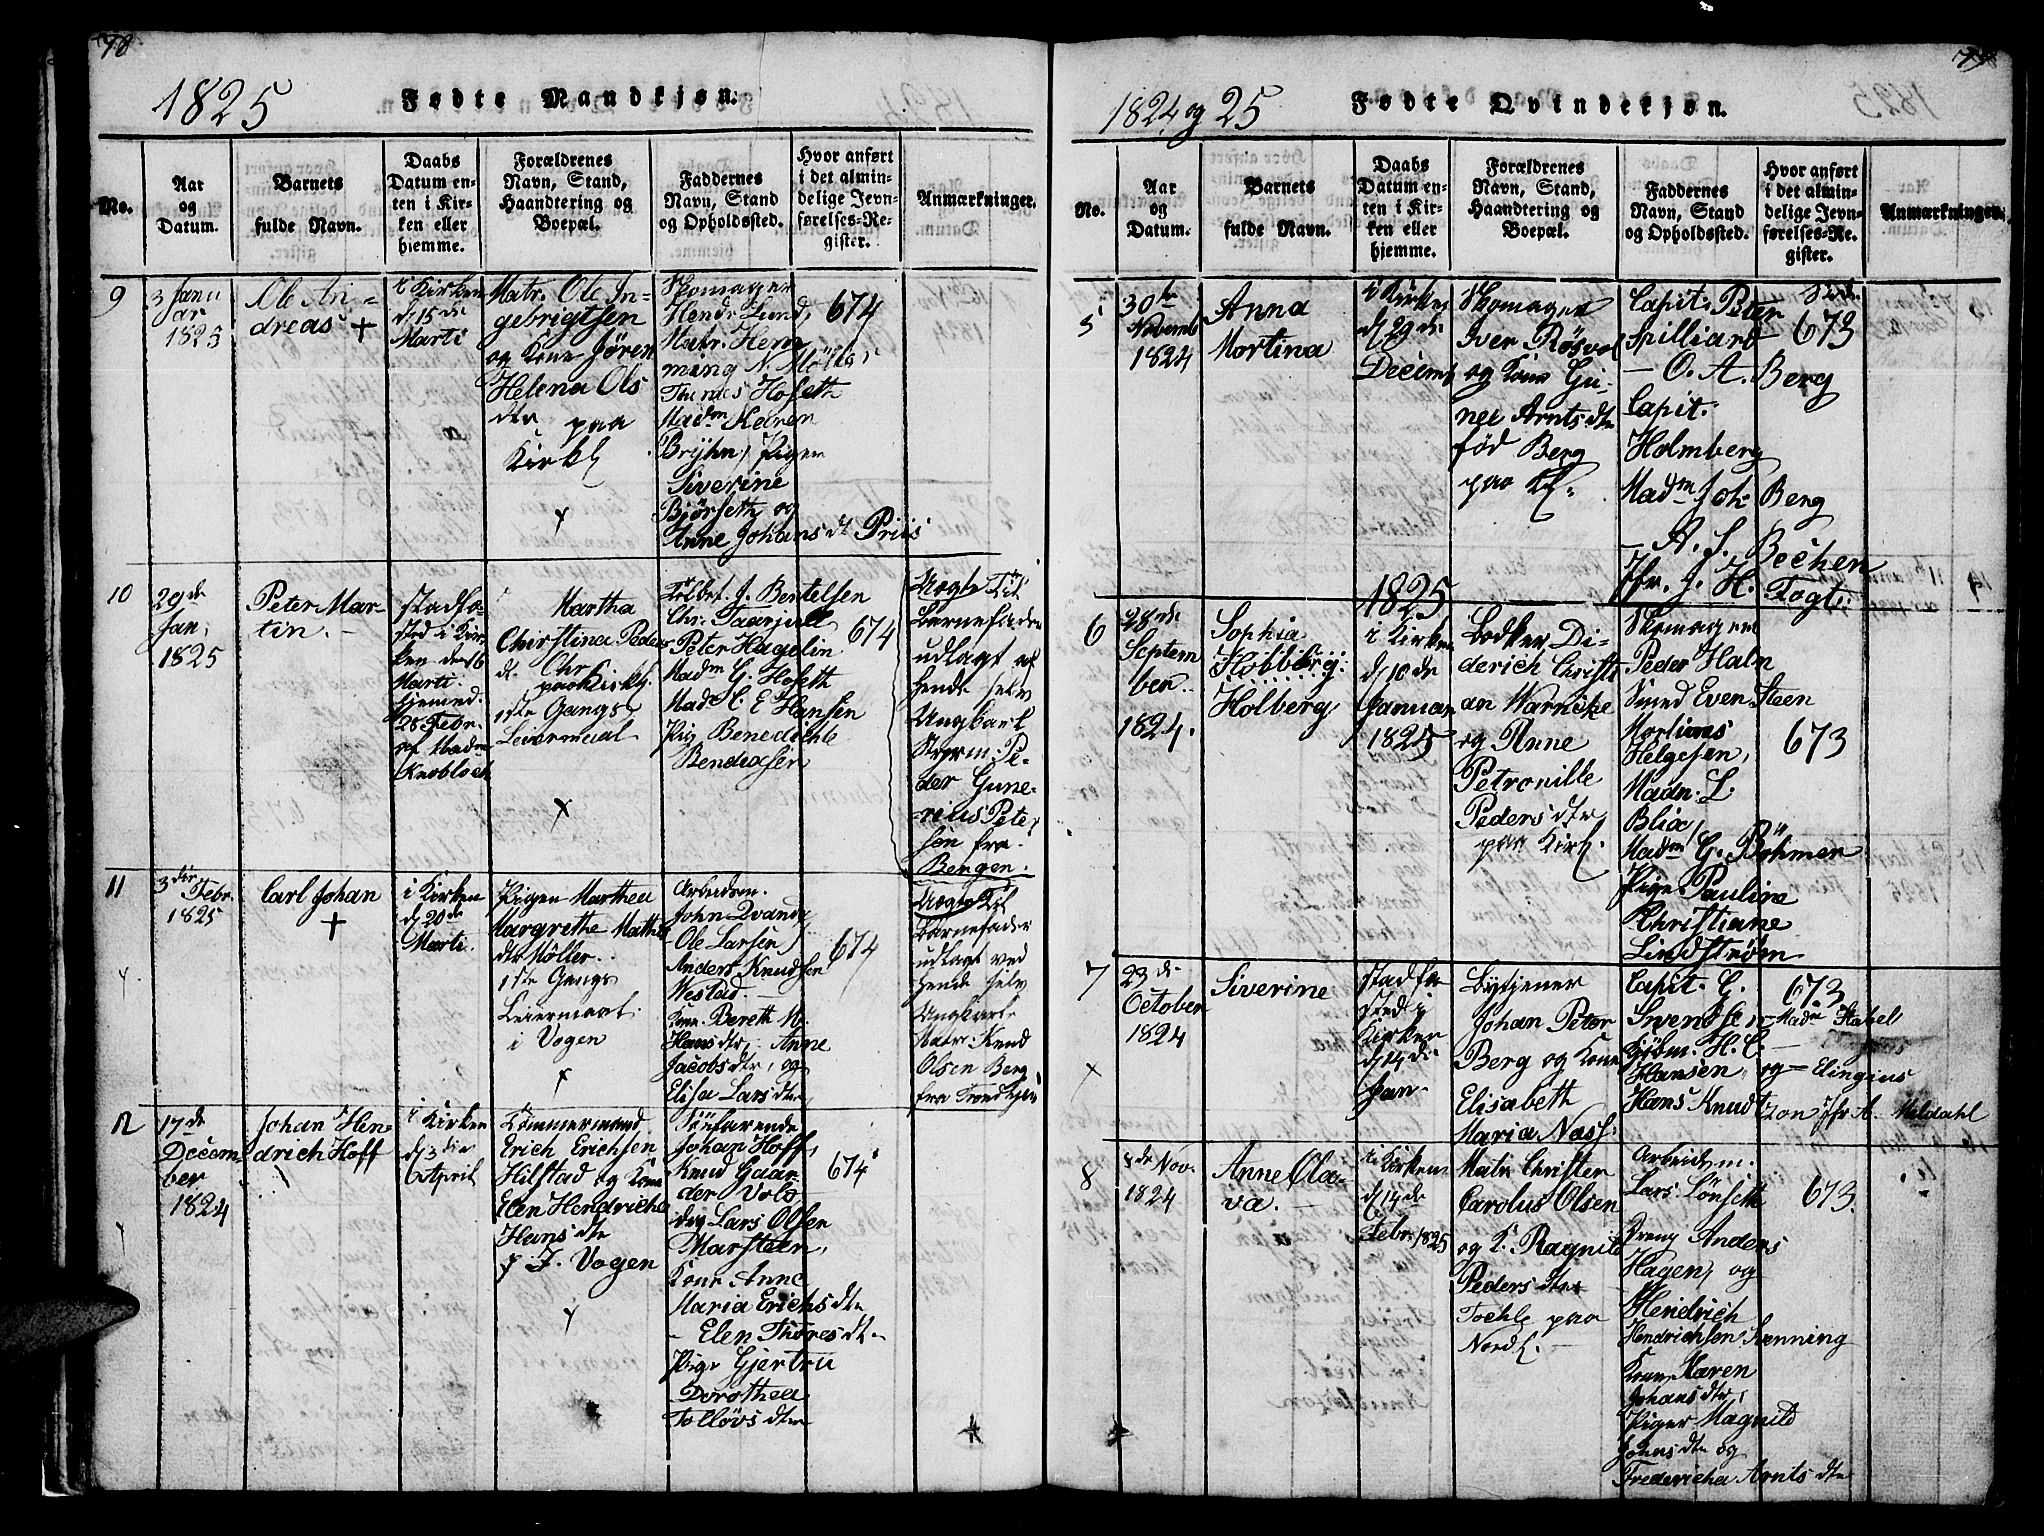 78
1825
Fødte Mandkjøn.
No.
Aar
og
Datum.
Barnets
fulde Navn.
Daabs
Datum en-
ten i Kir-
ken eller
hjemme.
Forældrenes
Navn, Stand,
Haandtering og
Boepæl.
Faddernes
Navn, Stand
og Opholdssted.
Hvor anført
i det almin-
delige Jevn-
førelses-Re-
gister.
Anmærkninger.
9
3 Janu
ar
1825
Ole An-
dreas +
i Kirken
d 15de
Marti
Matr. Ole In-
gebrigtsen
og Kone Jøren
Helena Ols
dtr paa
Kirkl
Skomager
Hendr Lund,
Matr. Hem
ming N. Möller
Hofeth
Madm Karen
Bryhn, Pigen
Siverine
Bjørseth og
Anne Johansdt Priis
674
10
29de
Jan.
1825
Peter Mar-
tin.
stadfæ-
sted i Kir-
ken den 6
Marti.
hjemmed.
28 Febr.
af Madm
Knobloch
Martha
Christina Peders
dr.
paa Kirkl.
1ste Gangs
Leiermaal
J. Bentelsen
Chr. Taarjull
Peter Hagelin
Madm G. Hofeth
Mad C. E Hansen
Pig Benedichte
Bendixsen
674
Uægte Til
Barnefader
udlagt af
hende selv
Ungkarl
Styrm. Pe-
der Gune-
rius Peter
sen fra
Bergen.
11
3die Febr.
1825
Carl Johan
+
i Kirken
d 20de
Marti.
Pigen Marthea
Margrethe Mathi
dtr Möller.
1ste Gangs
Leiermaal.
i Vogen
Arbeidsm.
John Qvande
Ole Larsen
Anders Knudsen
Westad.
Kone Bereth M.
Hansdtr, Anne
Jacobsdtr, og
Elisa Larsdtr
674
Uægte Til
Barnefader
udlagt ved
hende selv
Ungkarl
Matr. Knud
Olsen Berg
fra Trondhjem
12
17de
Decem-
ber
1824
Johan Hen-
drich Hoff
i Kirken
d 3die
April
Tömmermand
Erich Erichsen
Hilstad og Kone
Elen Hendricha
Hansdtr
p J. Vogen
Söefarende
Johan Hoff,
Knud Gaar-
der Volo
dig Lars Olsen
Marsteen,
Kone Anne
Maria Erichsdtr
- Elen Thoresdt-
Pige Gjertru
Dorothea
Tolløvsdtr
674
79
1824 og 25
Fødte Qvindekjøn.
No.
Aar
og
Datum.
Barnets
fulde Navn.
Daabs
Datum en-
ten i Kir-
ken eller
hjemme.
Forældrenes
Navn, Stand,
Haandtering og
Boepæl.
Faddernes
Navn, Stand
og Opholdssted.
Hvor anført
i det almin-
delige Jevn-
førelses-Re-
gister.
Anmærkninger.
5
30te
Novemb
1824
Anna
Martina
i Kirken
d 29de
Decemb
Skomager
Iver Røsvol
og Kone Gu-
nel Arntsdtr
fød Berg
paa Kl.
Capit. Peter
Spilliard
- O. A. Berg
Capit.
Holmberg
Madm Joh. Berg
- A. J. Bechen
Jfr. J. H. Fogt.
Side
673
6
28de
Septem
ber.
1824.
Sophia
Hobberg.
Holberg,
1825
i Kirken
d 10de
Januar
1825
Bødker Di-
derich Christi
an Warncke
og Anne
Petronille
Pedersdtr
paa Kirkl.
Skomager
Peder Halm
Smed Even Steen
Martinus
Helgesen,
Madm. L.
Blix,
Madm G. Böhmer
Pige Pauline
Christiane
Lindstrøm
673
7
23de
October
1824
Siverine
stadfæ
sted i
Kirken
d 14de
Jan.
Bytjener
Johan Peter
Berg og Kone
Elisabeth
Maria Næss.
Capit. G.
Swendsen
Kjöbm. H. C.
Hansen,
Hans Knudtzon Jfr A. Meldahl
673
Madm Stabel
og - Elingius
8
4de Nov.
1824
Anne Ola-
va.
i Kirken
d 14de
Febr. 1825
Matr Christen
Carolus Olsen
og K. Ragnild
Pedersdtr
paa
Nordl.
Arbeidsm.
Lars Lønseth
Dreng Anders
Hagen, og
Hendrich
Hendrichsen Lænning
Kone Karen
Johansdtr,
Piger Magnild
Johnsdtr og
Fredericha Arntsdtr
673.